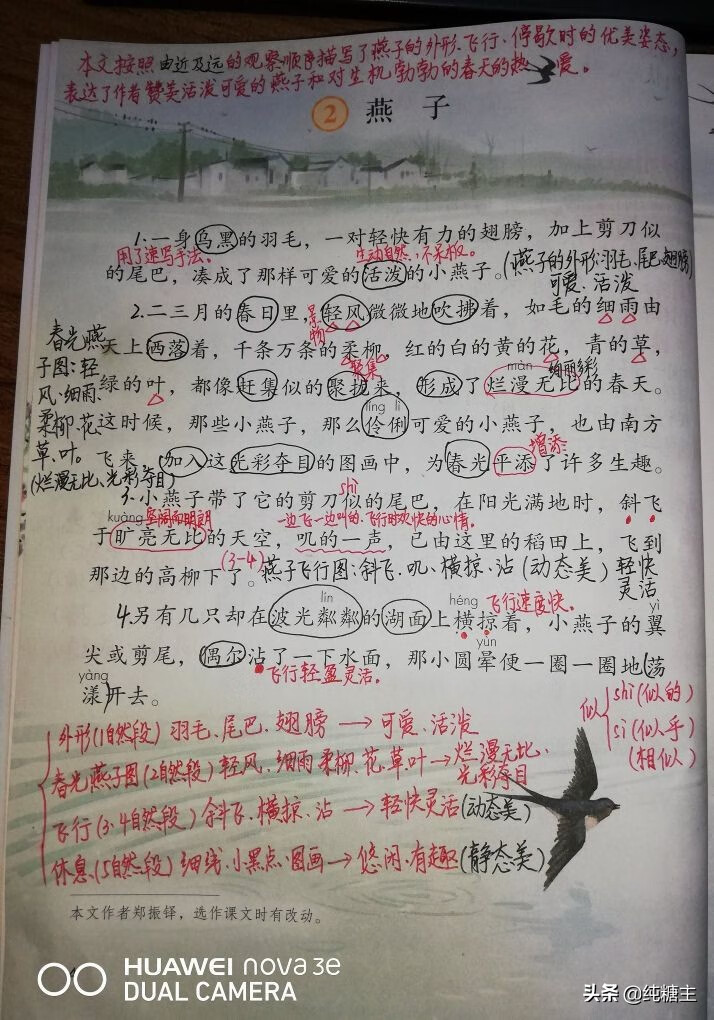 本文按照由近及远的观察顺序描写了燕子的外形、飞行、停歇时的优美姿态,
表达了作者赞美活泼可爱的燕子和对生机勃勃的春天的热爱。
2 燕子
1.一身乌黑的羽毛,一对轻快有力的翅膀,加上剪刀似
用了速写手法。
生动自然,不呆板。
的尾巴,凑成了那样可爱的活泼的小燕子。(燕子的外形:羽毛、尾巴、翅膀)
可爱、活泼
2.二三月的春日里,轻风微微地吹拂着,如毛的细雨由
景物
春光燕子图:轻风、细雨、柔柳、花、草、叶。
(烂漫无比、光彩夺目)
天上洒落着,千条万条的柔柳,红的白的黄的花,青的草,
聚集
màn
绚丽多彩
绿的叶,都像赶集似的聚拢来,形成了烂漫无比的春天。
líng lì
这时候,那些小燕子,那么伶俐可爱的小燕子,也由南方
增添
飞来,加入这光彩夺目的图画中,为春光平添了许多生趣。
shì
3.小燕子带了它的剪刀似的尾巴,在阳光满地时,斜飞
kuàng
空阔而明朗
一边飞一边叫的、飞行时欢快的心情。
于旷亮无比的天空,叽的一声,已由这里的稻田上,飞到
(3-4)
那边的高柳下了。燕子飞行图:斜飞、叽、横掠、沾(动态美)轻快
灵活
lín
héng
飞行速度快。
4.另有几只却在波光粼粼的湖面上横掠着,小燕子的翼
yì
yùn
尖或剪尾,偶尔沾了一下水面,那小圆晕便一圈一圈地荡
飞行轻盈灵活。
yàng
漾开去。
似 shì(似的)
sì(似乎)
(相似)
外形(1自然段)羽毛、尾巴、翅膀→可爱、活泼
春光燕子图(2自然段)轻风、细雨、柔柳、花、草、叶→烂漫无比、
光彩夺目
飞行(3、4自然段)斜飞、横掠、沾→轻快灵活(动态美)
休息(5自然段)细线、小黑点、图画→悠闲、有趣(静态美)
本文作者郑振铎,选作课文时有改动。
HUAWEI nova 3e
DUAL CAMERA
头条 @纯糖主